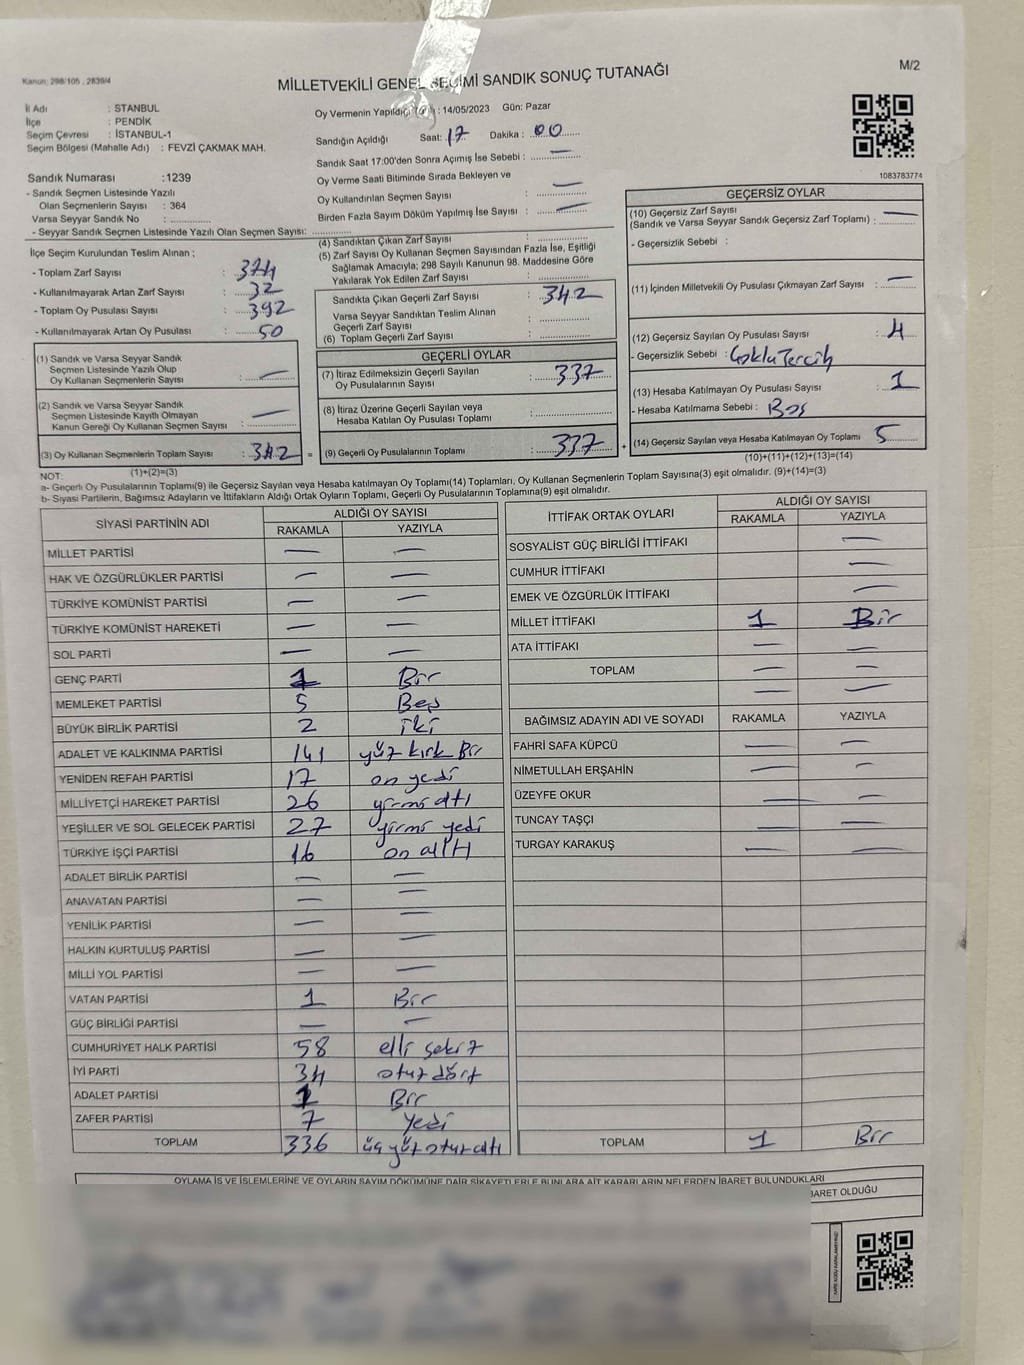 Kanun: 298/105 , 2839/4
M/2
MİLLETVEKİLİ GENEL SEÇİMİ SANDIK SONUÇ TUTANAĞI
İl Adı : STANBUL
İlçe : PENDİK
Seçim Çevresi : İSTANBUL-1
Seçim Bölgesi (Mahalle Adı) : FEVZİ ÇAKMAK MAH.
Oy Vermenin Yapıldığı : 14/05/2023 Gün: Pazar
Sandığın Açıldığı Saat: 17 Dakika : 00
Sandık Saat 17:00'den Sonra Açımış İse Sebebi : —
Oy Verme Saati Bitiminde Sırada Bekleyen ve
Oy Kullandırılan Seçmen Sayısı —
Birden Fazla Sayım Döküm Yapılmış İse Sayısı : —
1083783774
Sandık Numarası :1239
- Sandık Seçmen Listesinde Yazılı
Olan Seçmenlerin Sayısı : 364
Varsa Seyyar Sandık No :
- Seyyar Sandık Seçmen Listesinde Yazılı Olan Seçmen Sayısı:
İlçe Seçim Kurulundan Teslim Alınan ;
- Toplam Zarf Sayısı : 374
- Kullanılmayarak Artan Zarf Sayısı : 32
- Toplam Oy Pusulası Sayısı : 392
- Kullanılmayarak Artan Oy Pusulası : 50
(1) Sandık ve Varsa Seyyar Sandık
Seçmen Listesinde Yazılı Olup
Oy Kullanan Seçmenlerin Sayısı : —
(2) Sandık ve Varsa Seyyar Sandık
Seçmen Listesinde Kayıtlı Olmayan
Kanun Gereği Oy Kullanan Seçmen Sayısı : —
(3) Oy Kullanan Seçmenlerin Toplam Sayısı : 342 =
(1)+(2)=(3)
(4) Sandıktan Çıkan Zarf Sayısı :
(5) Zarf Sayısı Oy Kullanan Seçmen Sayısından Fazla İse, Eşitliği
Sağlamak Amacıyla; 298 Sayılı Kanunun 98. Maddesine Göre
Yakılarak Yok Edilen Zarf Sayısı :
Sandıkta Çıkan Geçerli Zarf Sayısı : 342
Varsa Seyyar Sandıktan Teslim Alınan
Geçerli Zarf Sayısı :
(6) Toplam Geçerli Zarf Sayısı :
GEÇERLİ OYLAR
(7) İtiraz Edilmeksizin Geçerli Sayılan
Oy Pusulalarının Sayısı : 337
(8) İtiraz Üzerine Geçerli Sayılan veya
Hesaba Katılan Oy Pusulası Toplamı :
(9) Geçerli Oy Pusulalarının Toplamı : 337 +
GEÇERSİZ OYLAR
(10) Geçersiz Zarf Sayısı
(Sandık ve Varsa Seyyar Sandık Geçersiz Zarf Toplamı) : —
- Geçersizlik Sebebi :
(11) İçinden Milletvekili Oy Pusulası Çıkmayan Zarf Sayısı : —
(12) Geçersiz Sayılan Oy Pusulası Sayısı : 4
- Geçersizlik Sebebi : Çoklu Tercih
(13) Hesaba Katılmayan Oy Pusulası Sayısı : 1
- Hesaba Katılmama Sebebi : Boş
(14) Geçersiz Sayılan veya Hesaba Katılmayan Oy Toplamı 5
(10)+(11)+(12)+(13)=(14)
NOT:
a- Geçerli Oy Pusulalarının Toplamı(9) ile Geçersiz Sayılan veya Hesaba katılmayan Oy Toplamı(14) Toplamları, Oy Kullanan Seçmenlerin Toplam Sayısına(3) eşit olmalıdır. (9)+(14)=(3)
b- Siyasi Partilerin, Bağımsız Adayların ve İttifakların Aldığı Ortak Oyların Toplamı, Geçerli Oy Pusulalarının Toplamına(9) eşit olmalıdır.
SİYASİ PARTİNİN ADI ALDIĞI OY SAYISI
RAKAMLA YAZIYLA
MİLLET PARTİSİ — —
HAK VE ÖZGÜRLÜKLER PARTİSİ — —
TÜRKİYE KOMÜNİST PARTİSİ — —
TÜRKİYE KOMÜNİST HAREKETİ — —
SOL PARTİ — —
GENÇ PARTİ 1 Bir
MEMLEKET PARTİSİ 5 Beş
BÜYÜK BİRLİK PARTİSİ 2 iki
ADALET VE KALKINMA PARTİSİ 141 yüz kırk Bir
YENİDEN REFAH PARTİSİ 17 on yedi
MİLLİYETÇİ HAREKET PARTİSİ 26 yirmi altı
YEŞİLLER VE SOL GELECEK PARTİSİ 27 yirmi yedi
TÜRKİYE İŞÇİ PARTİSİ 16 on altı
ADALET BİRLİK PARTİSİ — —
ANAVATAN PARTİSİ — —
YENİLİK PARTİSİ — —
HALKIN KURTULUŞ PARTİSİ — —
MİLLİ YOL PARTİSİ — —
VATAN PARTİSİ 1 Bir
GÜÇ BİRLİĞİ PARTİSİ — —
CUMHURİYET HALK PARTİSİ 58 elli sekiz
İYİ PARTİ 34 otuz dört
ADALET PARTİSİ 1 Bir
ZAFER PARTİSİ 7 Yedi
TOPLAM 336 üç yüz otuz altı
İTTİFAK ORTAK OYLARI ALDIĞI OY SAYISI
RAKAMLA YAZIYLA
SOSYALİST GÜÇ BİRLİĞİ İTTİFAKI —
CUMHUR İTTİFAKI —
EMEK VE ÖZGÜRLÜK İTTİFAKI —
MİLLET İTTİFAKI 1 Bir
ATA İTTİFAKI — —
TOPLAM — —
— —
BAĞIMSIZ ADAYIN ADI VE SOYADI RAKAMLA YAZIYLA
FAHRİ SAFA KÜPCÜ — —
NİMETULLAH ERŞAHİN — —
ÜZEYFE OKUR — —
TUNCAY TAŞÇI — —
TURGAY KARAKUŞ — —
TOPLAM 1 Bir
OYLAMA İŞ VE İŞLEMLERİNE VE OYLARIN SAYIM DÖKÜMÜNE DAİR ŞİKAYETLERLE BUNLARA AİT KARARLARIN NELERDEN İBARET BULUNDUKLARI
BARET OLDUĞU